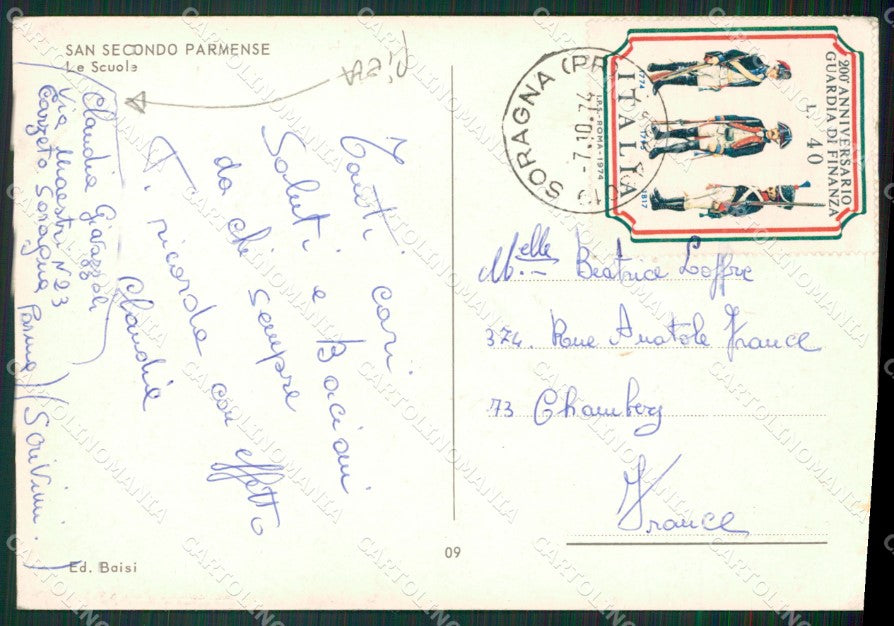 SAN SECONDO PARMENSE
Le Scuole
Tanti cari
Saluti e Bacioni
da chi sempre
Ti ricorda con affetto
Claudia
Claudia
Via Maestri N 23
Carzeto Soragna Parma
(Scrivimi.)
Ed. Baisi
09
SORAGNA (PR)
-7.10.74
200° ANNIVERSARIO
GUARDIA DI FINANZA
L. 40
ITALIA
1774
1817
I.P.S.-ROMA-1974
M.elle Beatrice Loffre
374. Rue Anatole France
73 Chambery
France
CARTOLINOMANIA